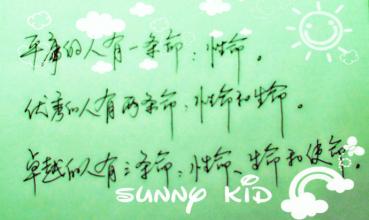 平庸的人有一条命：性命。
优秀的人有两条命：性命和生命。
卓越的人有三条命：性命、生命和使命。
SUNNY KID